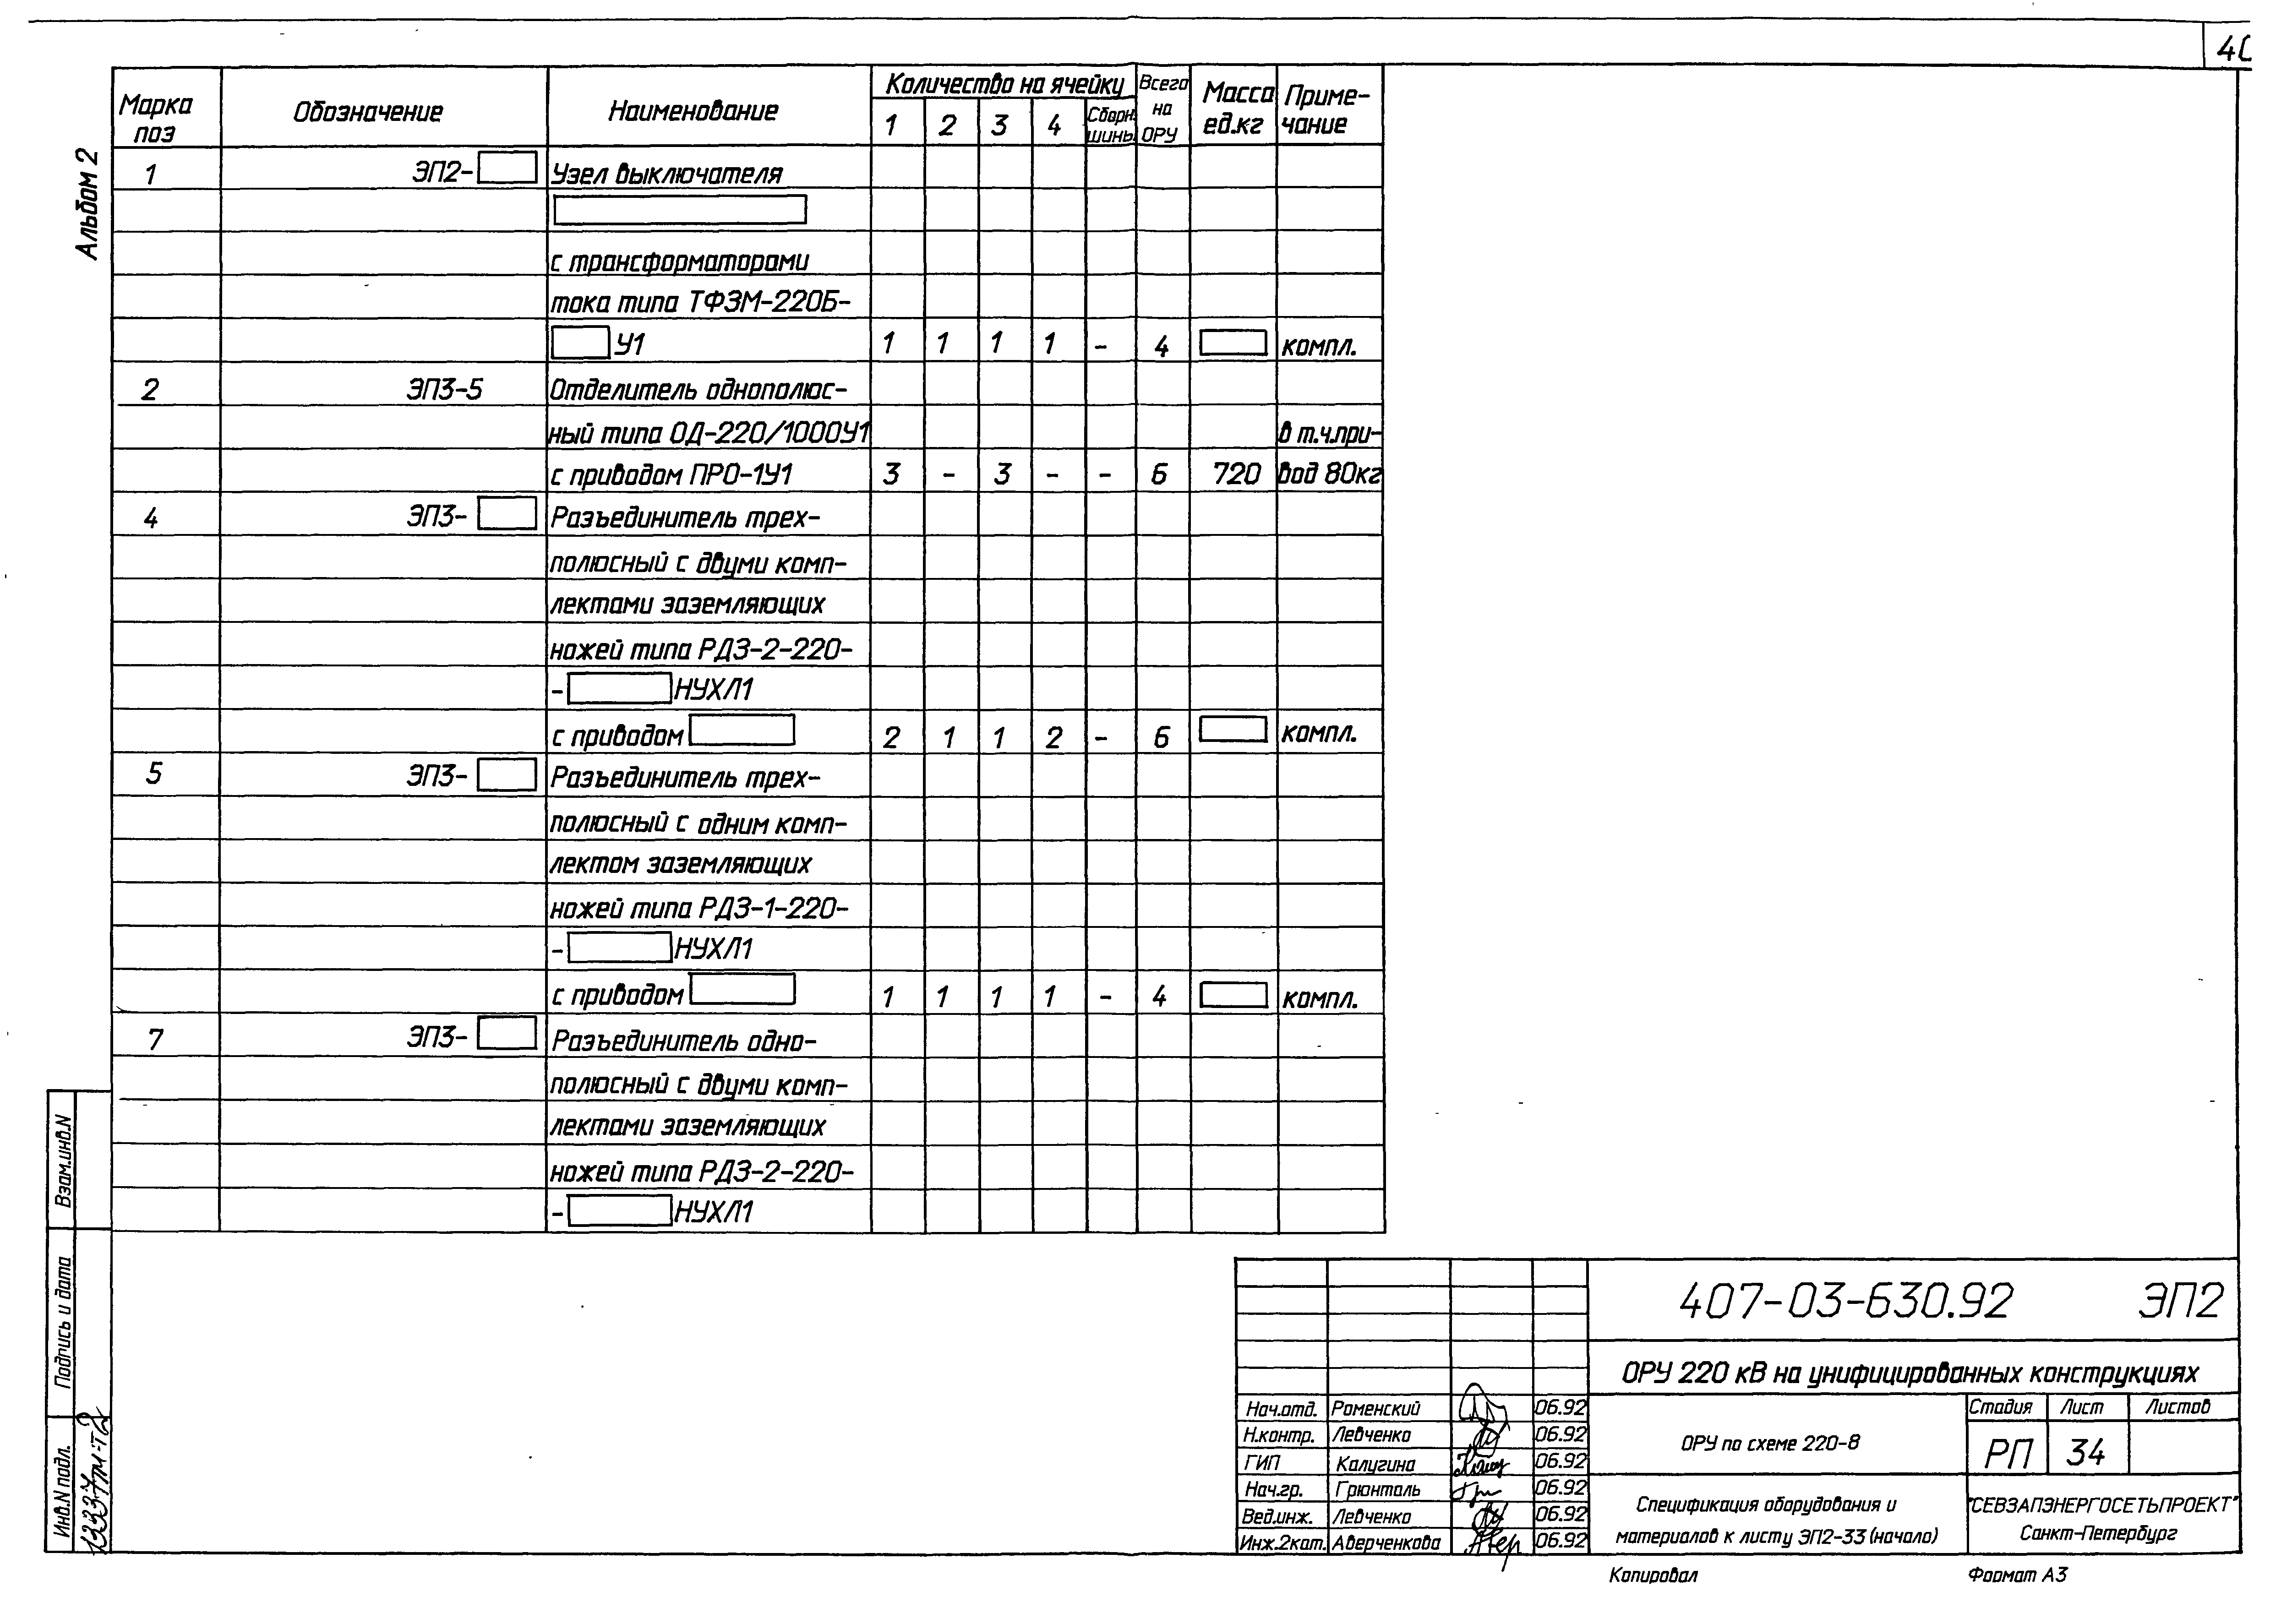 Альбом 2
Марка поз Обозначение Наименование Количество на ячейку Всего на ОРУ Масса ед.кг Приме-чание
1 2 3 4 Сборн. шины
1 ЭП2- Узел выключателя
с трансформаторами
тока типа ТФЗМ-220Б-
У1 1 1 1 1 - 4 компл.
2 ЭП3-5 Отделитель однополюс-
ный типа ОД-220/1000У1 в т.ч.при-
с приводом ПРО-1У1 3 - 3 - - 6 720 вод 80кг
4 ЭП3- Разъединитель трех-
полюсный с двумя комп-
лектами заземляющих
ножей типа РДЗ-2-220-
- НУХЛ1
с приводом 2 1 1 2 - 6 компл.
5 ЭП3- Разъединитель трех-
полюсный с одним комп-
лектом заземляющих
ножей типа РДЗ-1-220-
- НУХЛ1
с приводом 1 1 1 1 - 4 компл.
7 ЭП3- Разъединитель одно-
полюсный с двумя комп-
лектами заземляющих
ножей типа РДЗ-2-220-
- НУХЛ1
Взам.инв.N
Подпись и дата
Инв.N подл.
407-03-630.92 ЭП2
ОРУ 220 кВ на унифицированных конструкциях
Нач.отд. Роменский 06.92
Н.контр. Левченко 06.92
ГИП Калугина 06.92
Нач.гр. Грюнталь 06.92
Вед.инж. Левченко 06.92
Инж.2кат. Аверченкова 06.92
ОРУ по схеме 220-8
Стадия Лист Листов
РП 34
Спецификация оборудования и
материалов к листу ЭП2-33 (начало)
"СЕВЗАПЭНЕРГОСЕТЬПРОЕКТ"
Санкт-Петербург
Копировал Формат А3